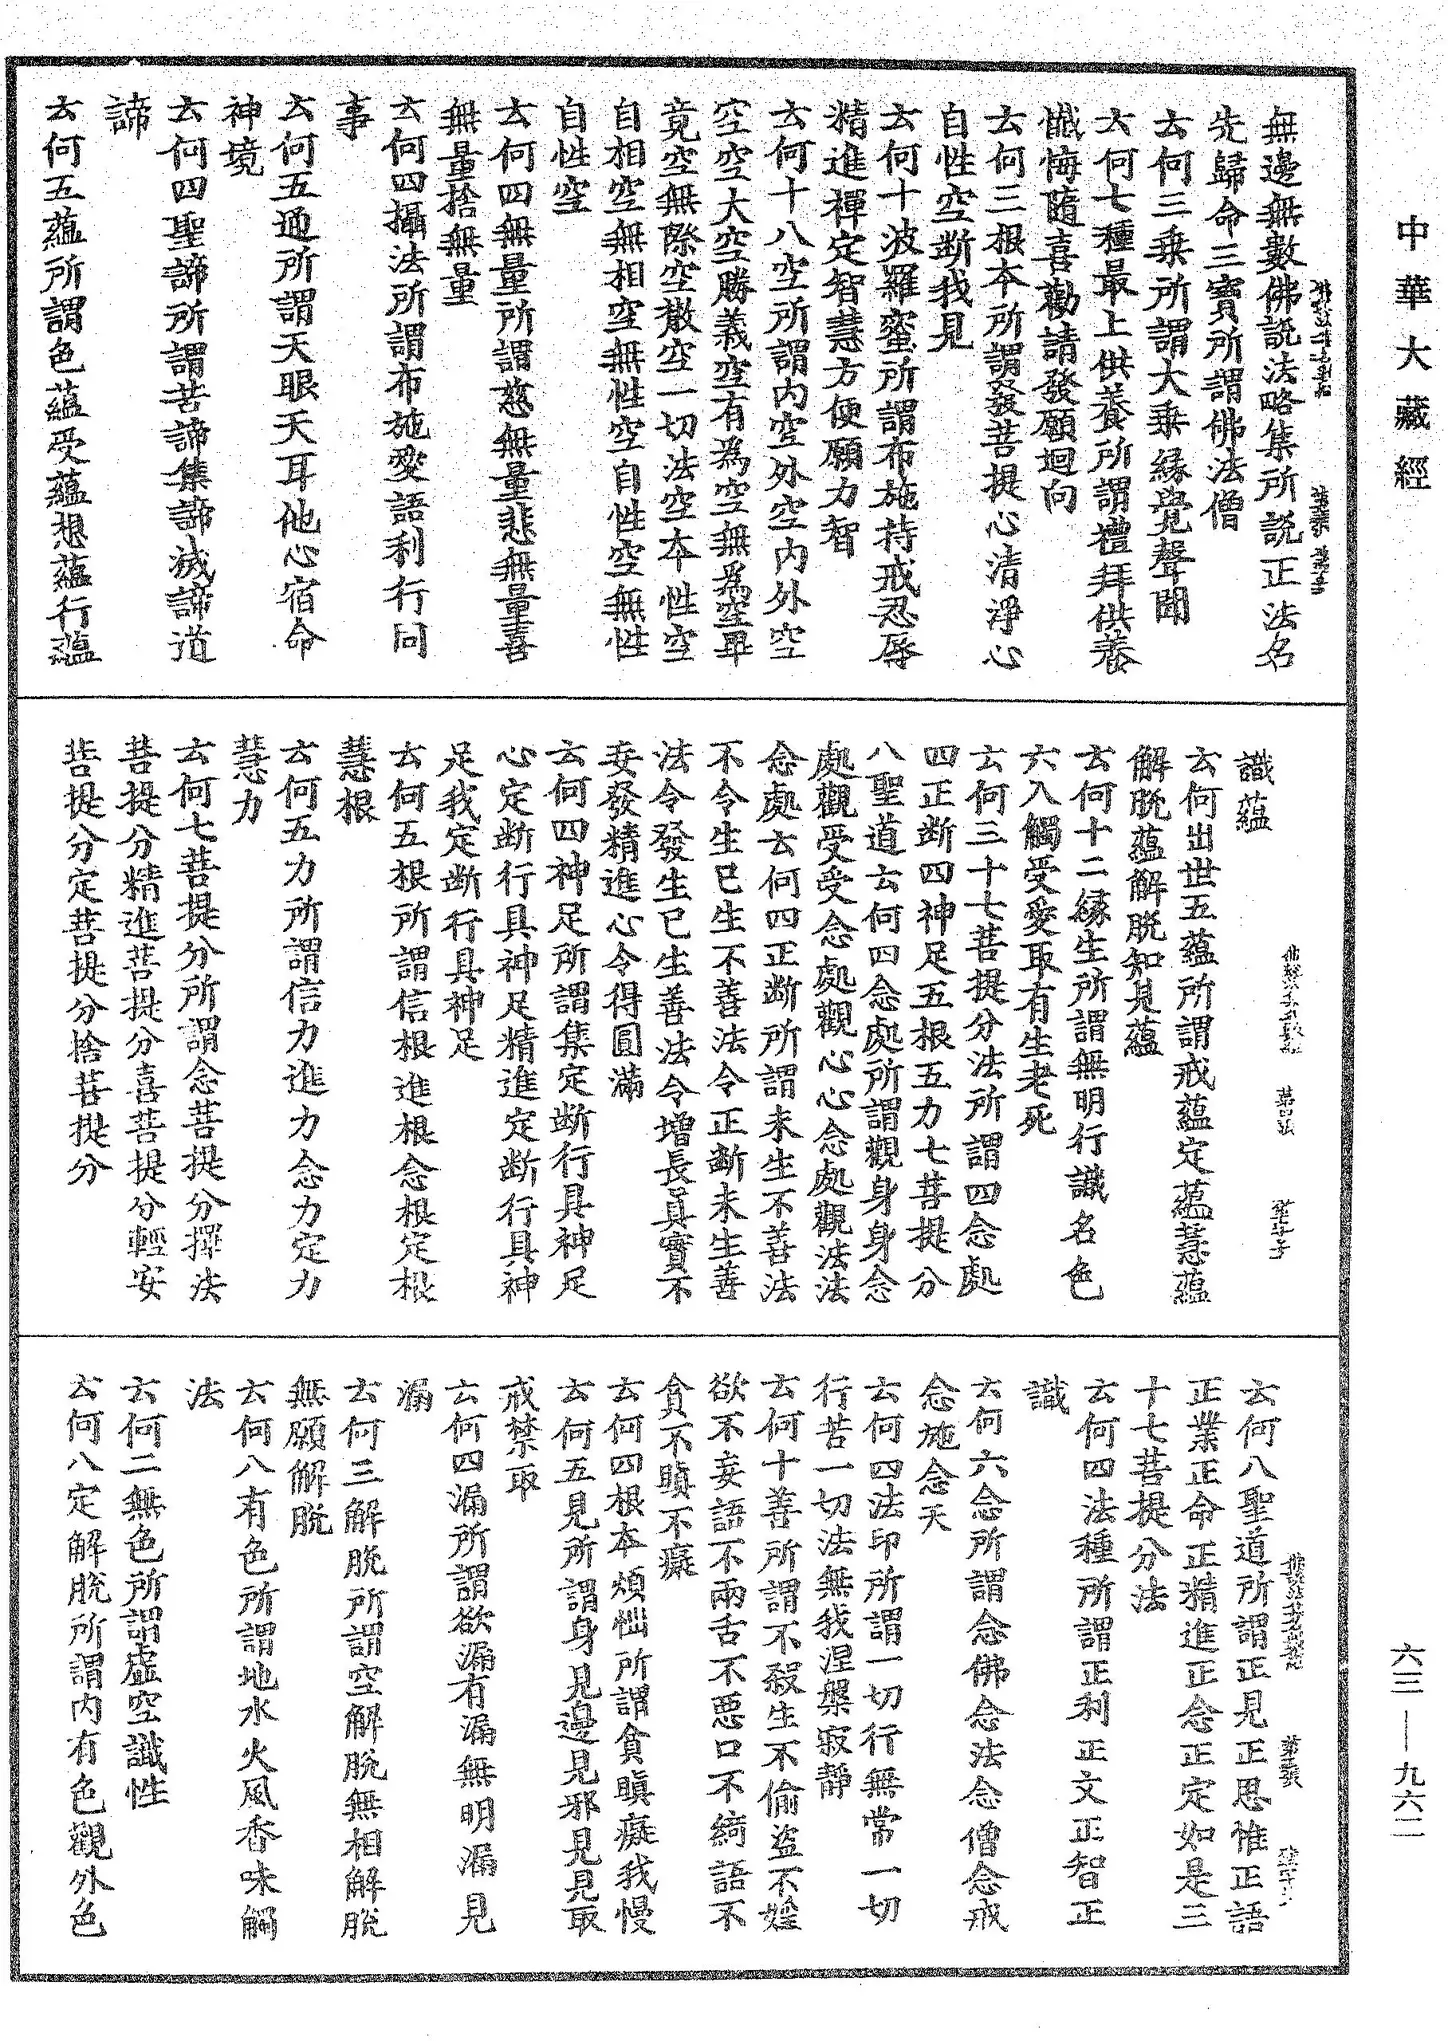 中華大藏經
無邊無數佛説法略集所説正法名
先歸命三寶所謂佛法僧
云何三乗所謂大乗縁覺聲聞
云何七種最上供養所謂禮拜供養
懺悔隨喜勸請發願迴向
云何三根本所謂發菩提心清淨心
自性空斷我見
云何十波羅蜜所謂布施持戒忍辱
精進禪定智慧方便願力智
云何十八空所謂内空外空内外空
空空大空勝義空有為空無為空畢
竟空無際空散空一切法空本性空
自相空無相空無性空自性空無性
自性空
云何四無量所謂慈無量悲無量喜
無量捨無量
云何四攝法所謂布施愛語利行同
事
云何五通所謂天眼天耳他心宿命
神境
云何四聖諦所謂苦諦集諦滅諦道
諦
云何五蘊所謂色蘊受蘊想蘊行蘊
識蘊
云何出世五蘊所謂戒蘊定蘊慧蘊
解脱蘊解脱知見蘊
云何十二縁生所謂無明行識名色
六入觸受愛取有生老死
云何三十七菩提分法所謂四念處
四正断四神足五根五力七菩提分
八聖道云何四念處所謂觀身身念
處觀受受念處觀心心念處觀法法
念處云何四正断所謂未生不善法
不令生已生不善法令正斷未生善
法令發生已生善法令增長真實不
妄發精進心令得圓滿
云何四神足所謂集定断行具神足
心定断行具神足精進定断行具神
足我定断行具神足
云何五根所謂信根進根念根定根
慧根
云何五力所謂信力進力念力定力
慧力
云何七菩提分所謂念菩提分擇法
菩提分精進菩提分喜菩提分輕安
菩提分定菩提分捨菩提分
云何八聖道所謂正見正思惟正語
正業正命正精進正念正定如是三
十七菩提分法
云何四法種所謂正利正文正智正
識
云何六念所謂念佛念法念僧念戒
念施念天
云何四法印所謂一切行無常一切
行苦一切法無我涅槃寂靜
云何十善所謂不殺生不偷盗不婬
欲不妄語不兩舌不惡口不綺語不
貪不瞋不癡
云何四根本煩惱所謂貪瞋癡我慢
云何五見所謂身見邊見邪見見取
戒禁取
云何四漏所謂欲漏有漏無明漏見
漏
云何三解脱所謂空解脱無相解脱
無願解脱
云何八有色所謂地水火風香味觸
法
云何二無色所謂虛空識性
云何八定解脱所謂内有色觀外色
六三—九六二